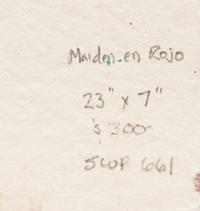 Maiden en Rojo
23" x 7"
$ 300
SWP 661